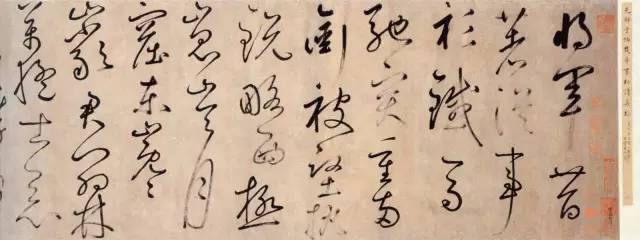 將軍昔
著從事
衫鐵馬
馳突重兩
銜被堅執
銳略西極
崑崙月
窟東嶄
巖君門羽林
萬猛士惡